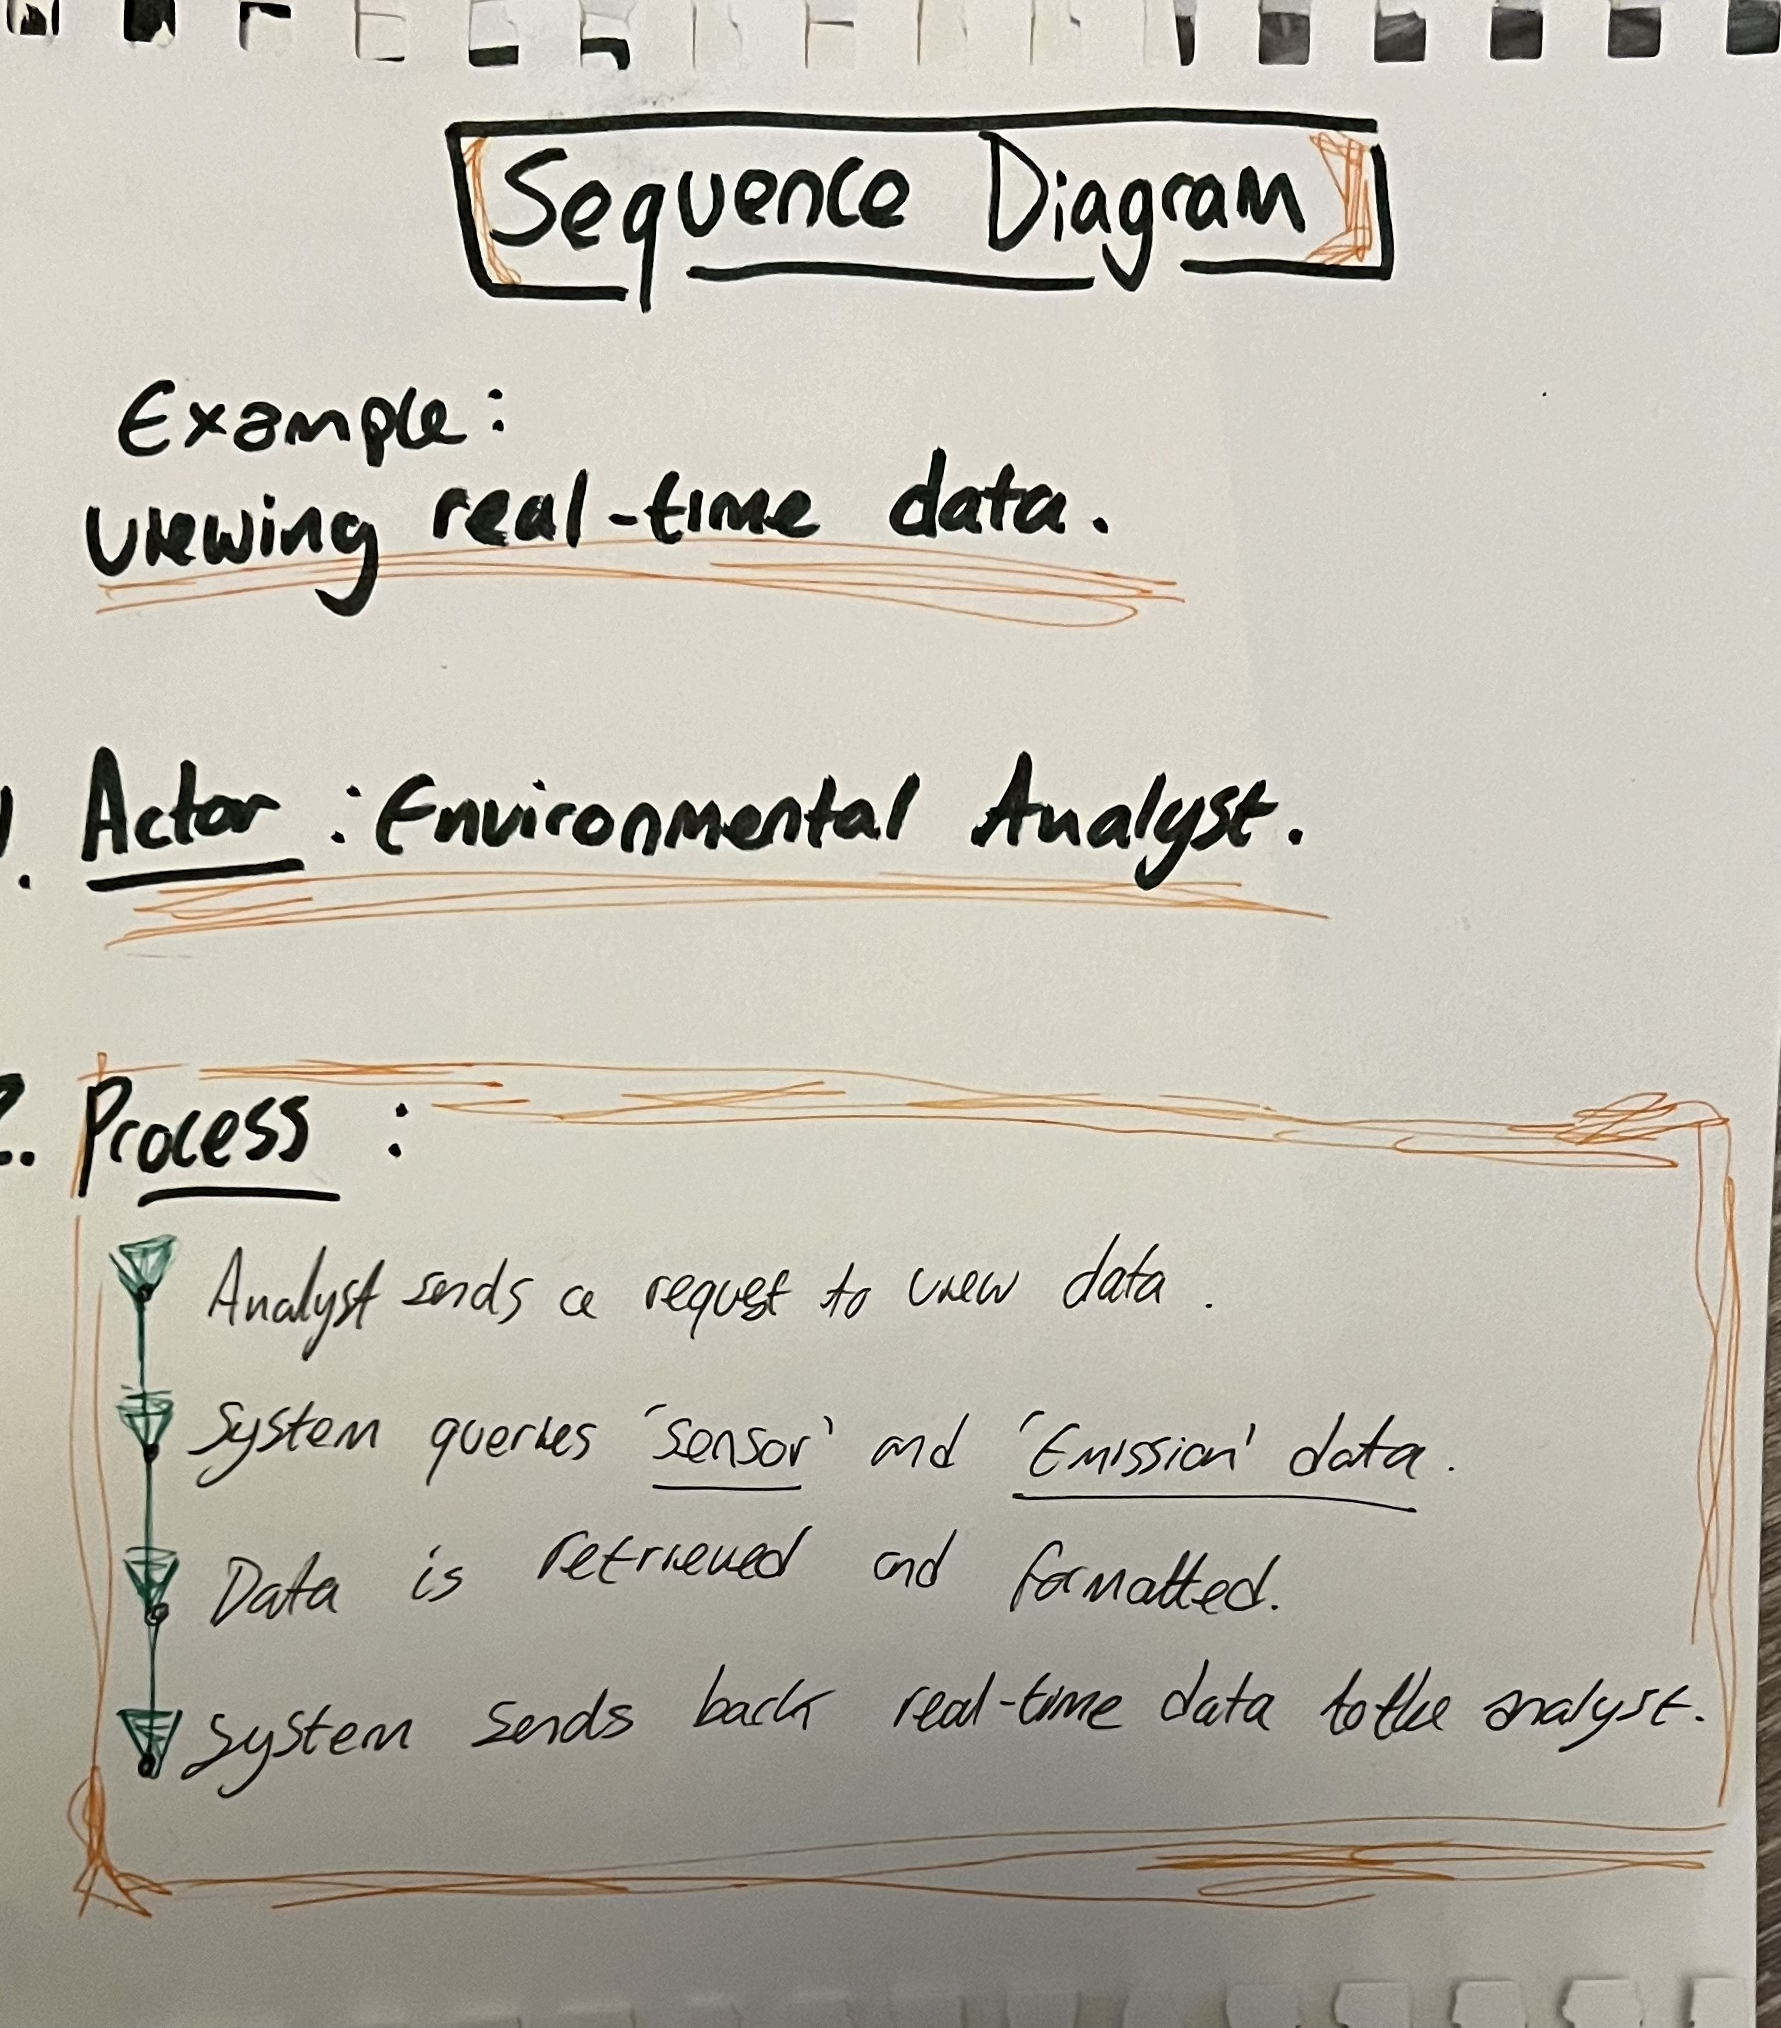 Sequence Diagram
Example:
viewing real-time data.
1. Actor : Environmental Analyst.
2. Process :
Analyst sends a request to view data.
System queries 'Sensor' and 'Emission' data.
Data is retrieved and formatted.
System sends back real-time data to the analyst.